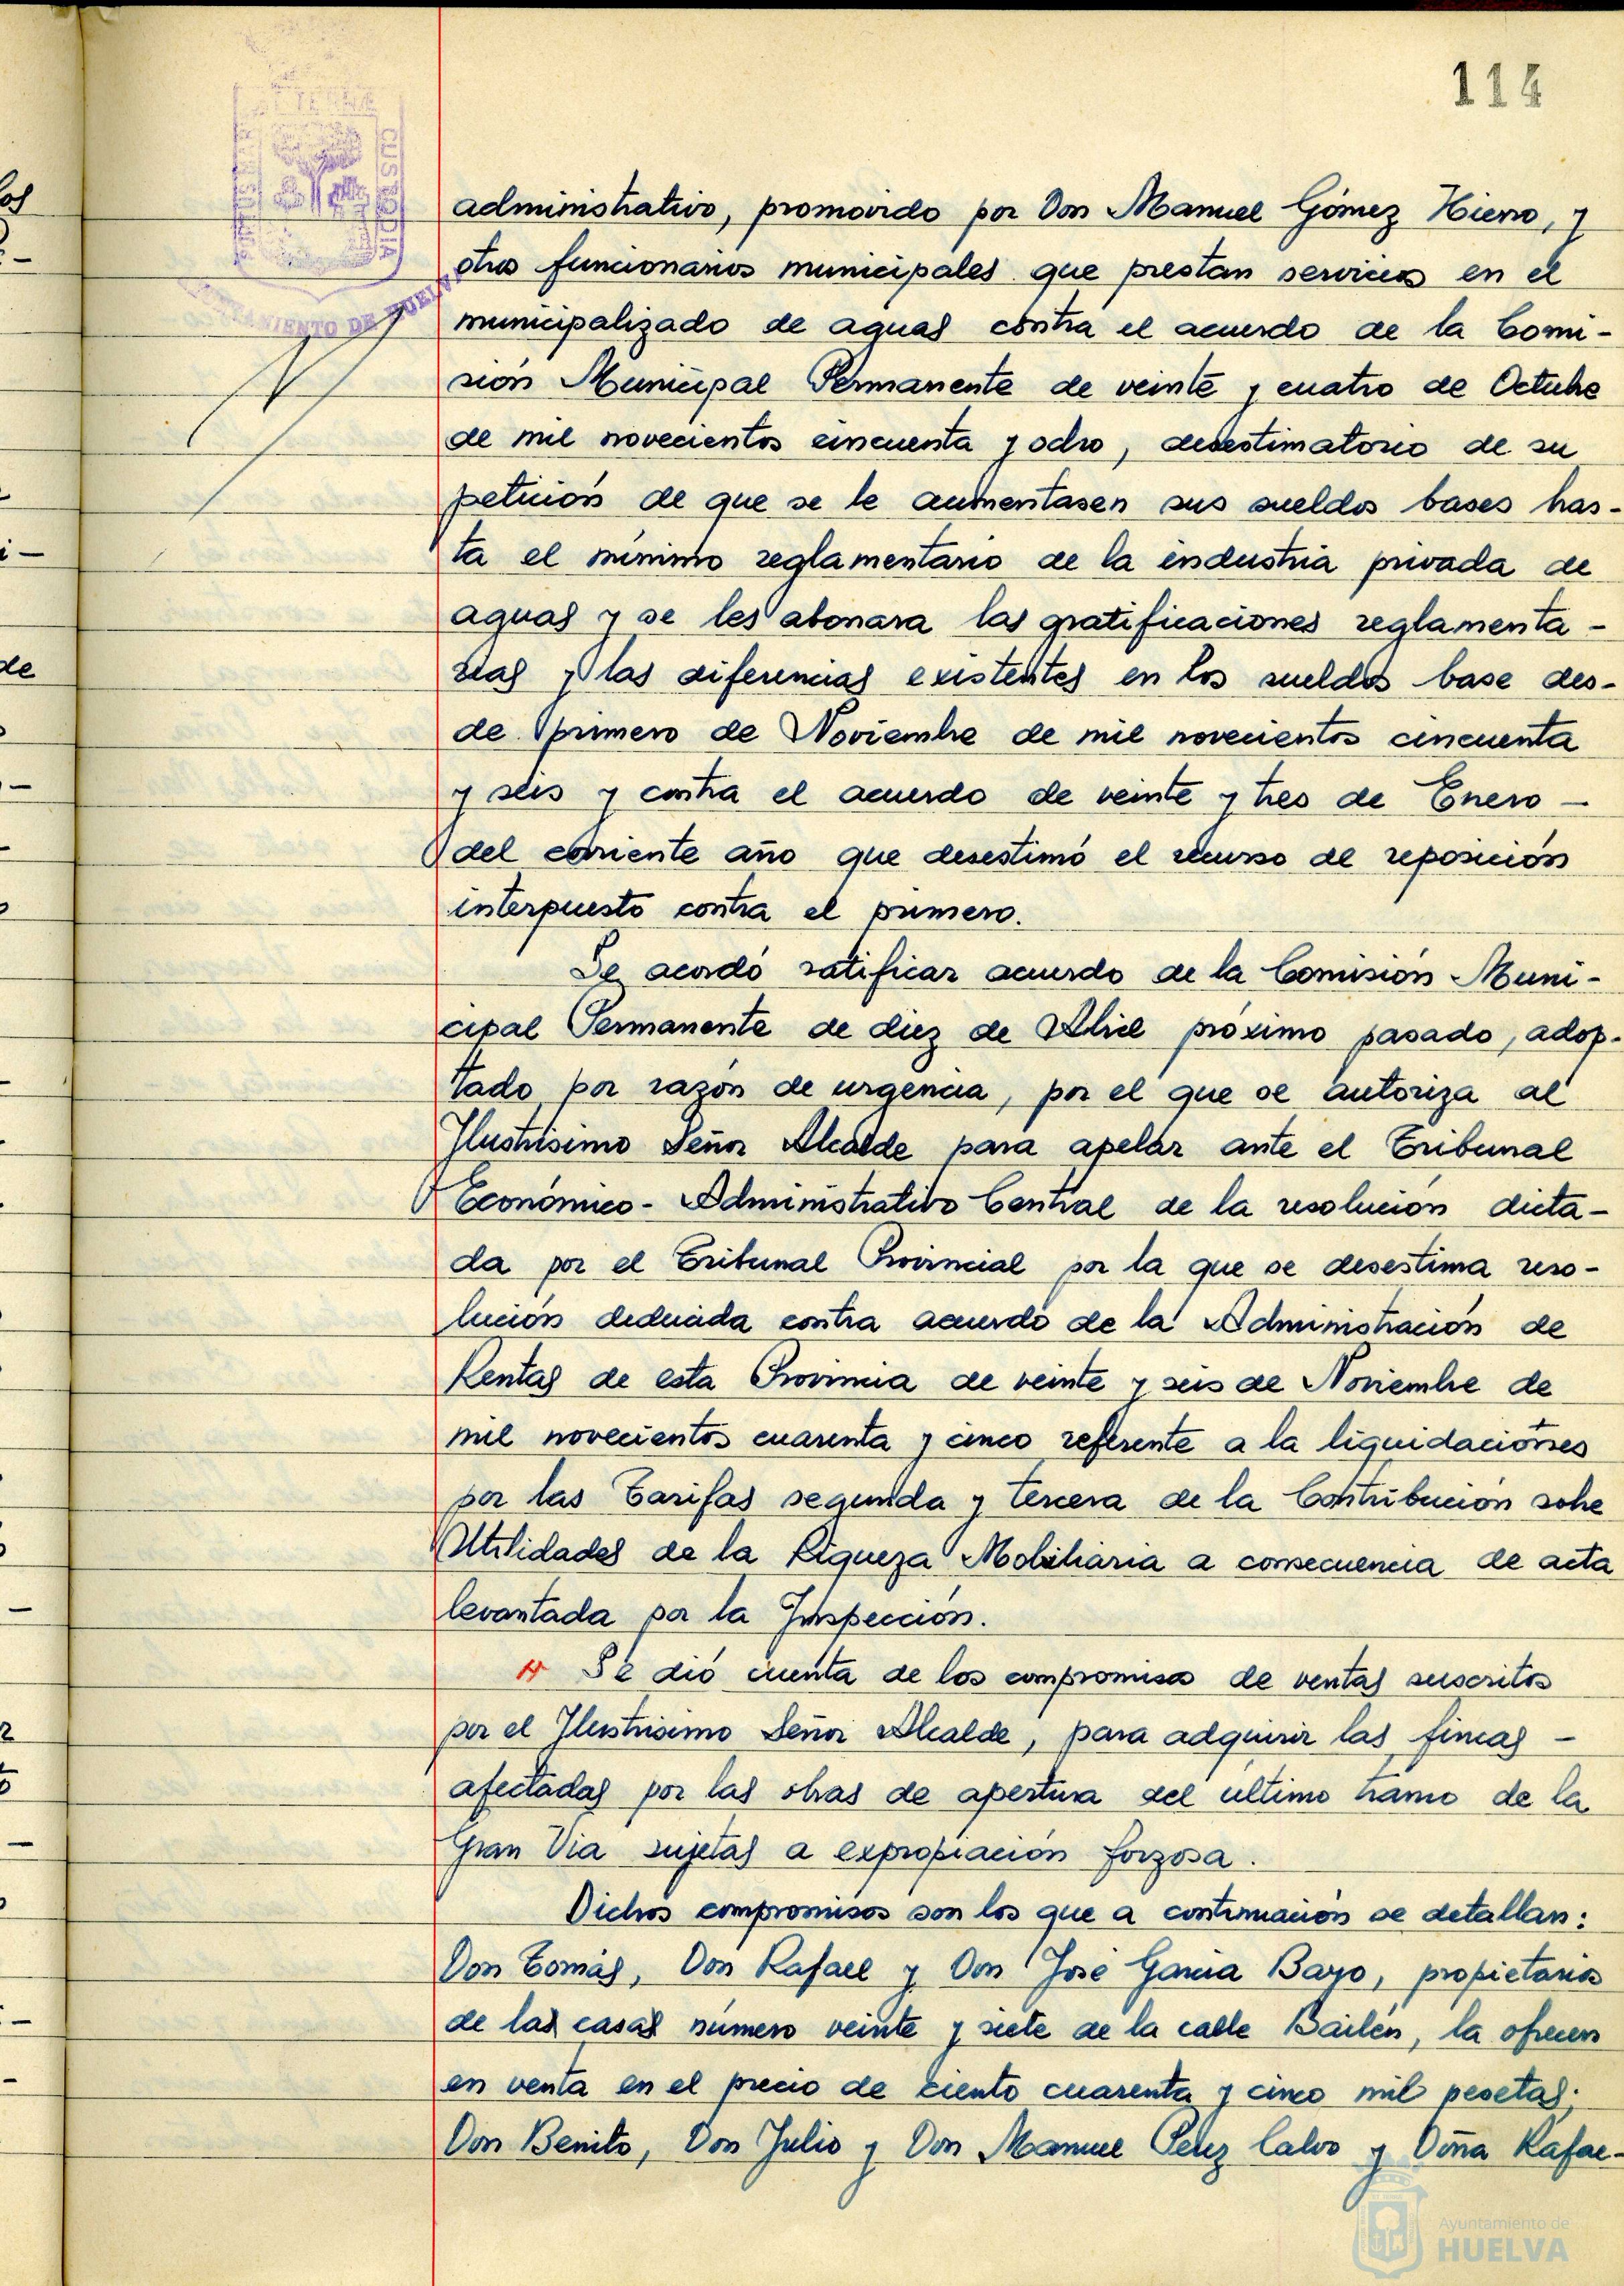 114
administrativo, promovido por Don Manuel Gómez Hierro, y
otros funcionarios municipales que prestan servicios en el
municipalizado de aguas contra el acuerdo de la Comi-
sión Municipal Permanente de veinte y cuatro de Octubre
de mil novecientos cincuenta y ocho, desestimatorio de su
petición de que se le aumentasen sus sueldos bases has-
ta el mínimo reglamentario de la industria privada de
aguas y se les abonara las gratificaciones reglamenta-
rias y las diferencias existentes en los sueldos base des-
de primero de Noviembre de mil novecientos cincuenta
y seis y contra el acuerdo de veinte y tres de Enero -
del corriente año que desestimó el recurso de reposición
interpuesto contra el primero.
Se acordó ratificar acuerdo de la Comisión Muni-
cipal Permanente de diez de Abril próximo pasado, adop-
tado por razón de urgencia, por el que se autoriza al
Ilustrísimo Señor Alcalde para apelar ante el Tribunal
Económico-Administrativo Central de la resolución dicta-
da por el Tribunal Provincial por la que se desestima reso-
lución deducida contra acuerdo de la Administración de
Rentas de esta Provincia de veinte y seis de Noviembre de
mil novecientos cuarenta y cinco referente a la liquidaciones
por las Tarifas segunda y tercera de la Contribución sobre
Utilidades de la Riqueza Mobiliaria a consecuencia de acta
levantada por la Inspección.
Se dió cuenta de los compromisos de ventas suscritos
por el Ilustrísimo Señor Alcalde, para adquirir las fincas -
afectadas por las obras de apertura del último tramo de la
Gran Via sujetas a expropiación forzosa.
Dichos compromisos son los que a continuación se detallan:
Don Tomás, Don Rafael y Don José García Bayo, propietarios
de las casas número veinte y siete de la calle Bailén, la ofrecen
en venta en el precio de ciento cuarenta y cinco mil pesetas;
Don Benito, Don Julio y Don Manuel Perez Calvo y Doña Rafae-
CUSTODIA
AYUNTAMIENTO DE HUELVA
Ayuntamiento de
HUELVA